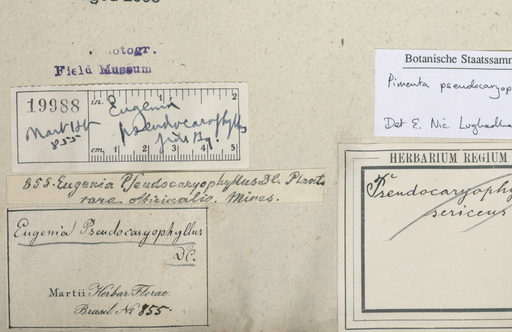 Field Museum
19988
in. 1 2
Eugenia
pseudocaryophyllus
Mart Hb
855
cm. 1 2 3 4 5
855. Eugenia Pseudocaryophyllus DC. Planta
rara officinalis. Minas.
Eugenia Pseudocaryophyllus
DC.
Martii Herbar. Florae
Brasil. No 855.
Botanische Staatssamm
Pimenta pseudocaryop
Det E. Nic Lughadha
HERBARIUM REGIUM
Pseudocaryophy
sericeus